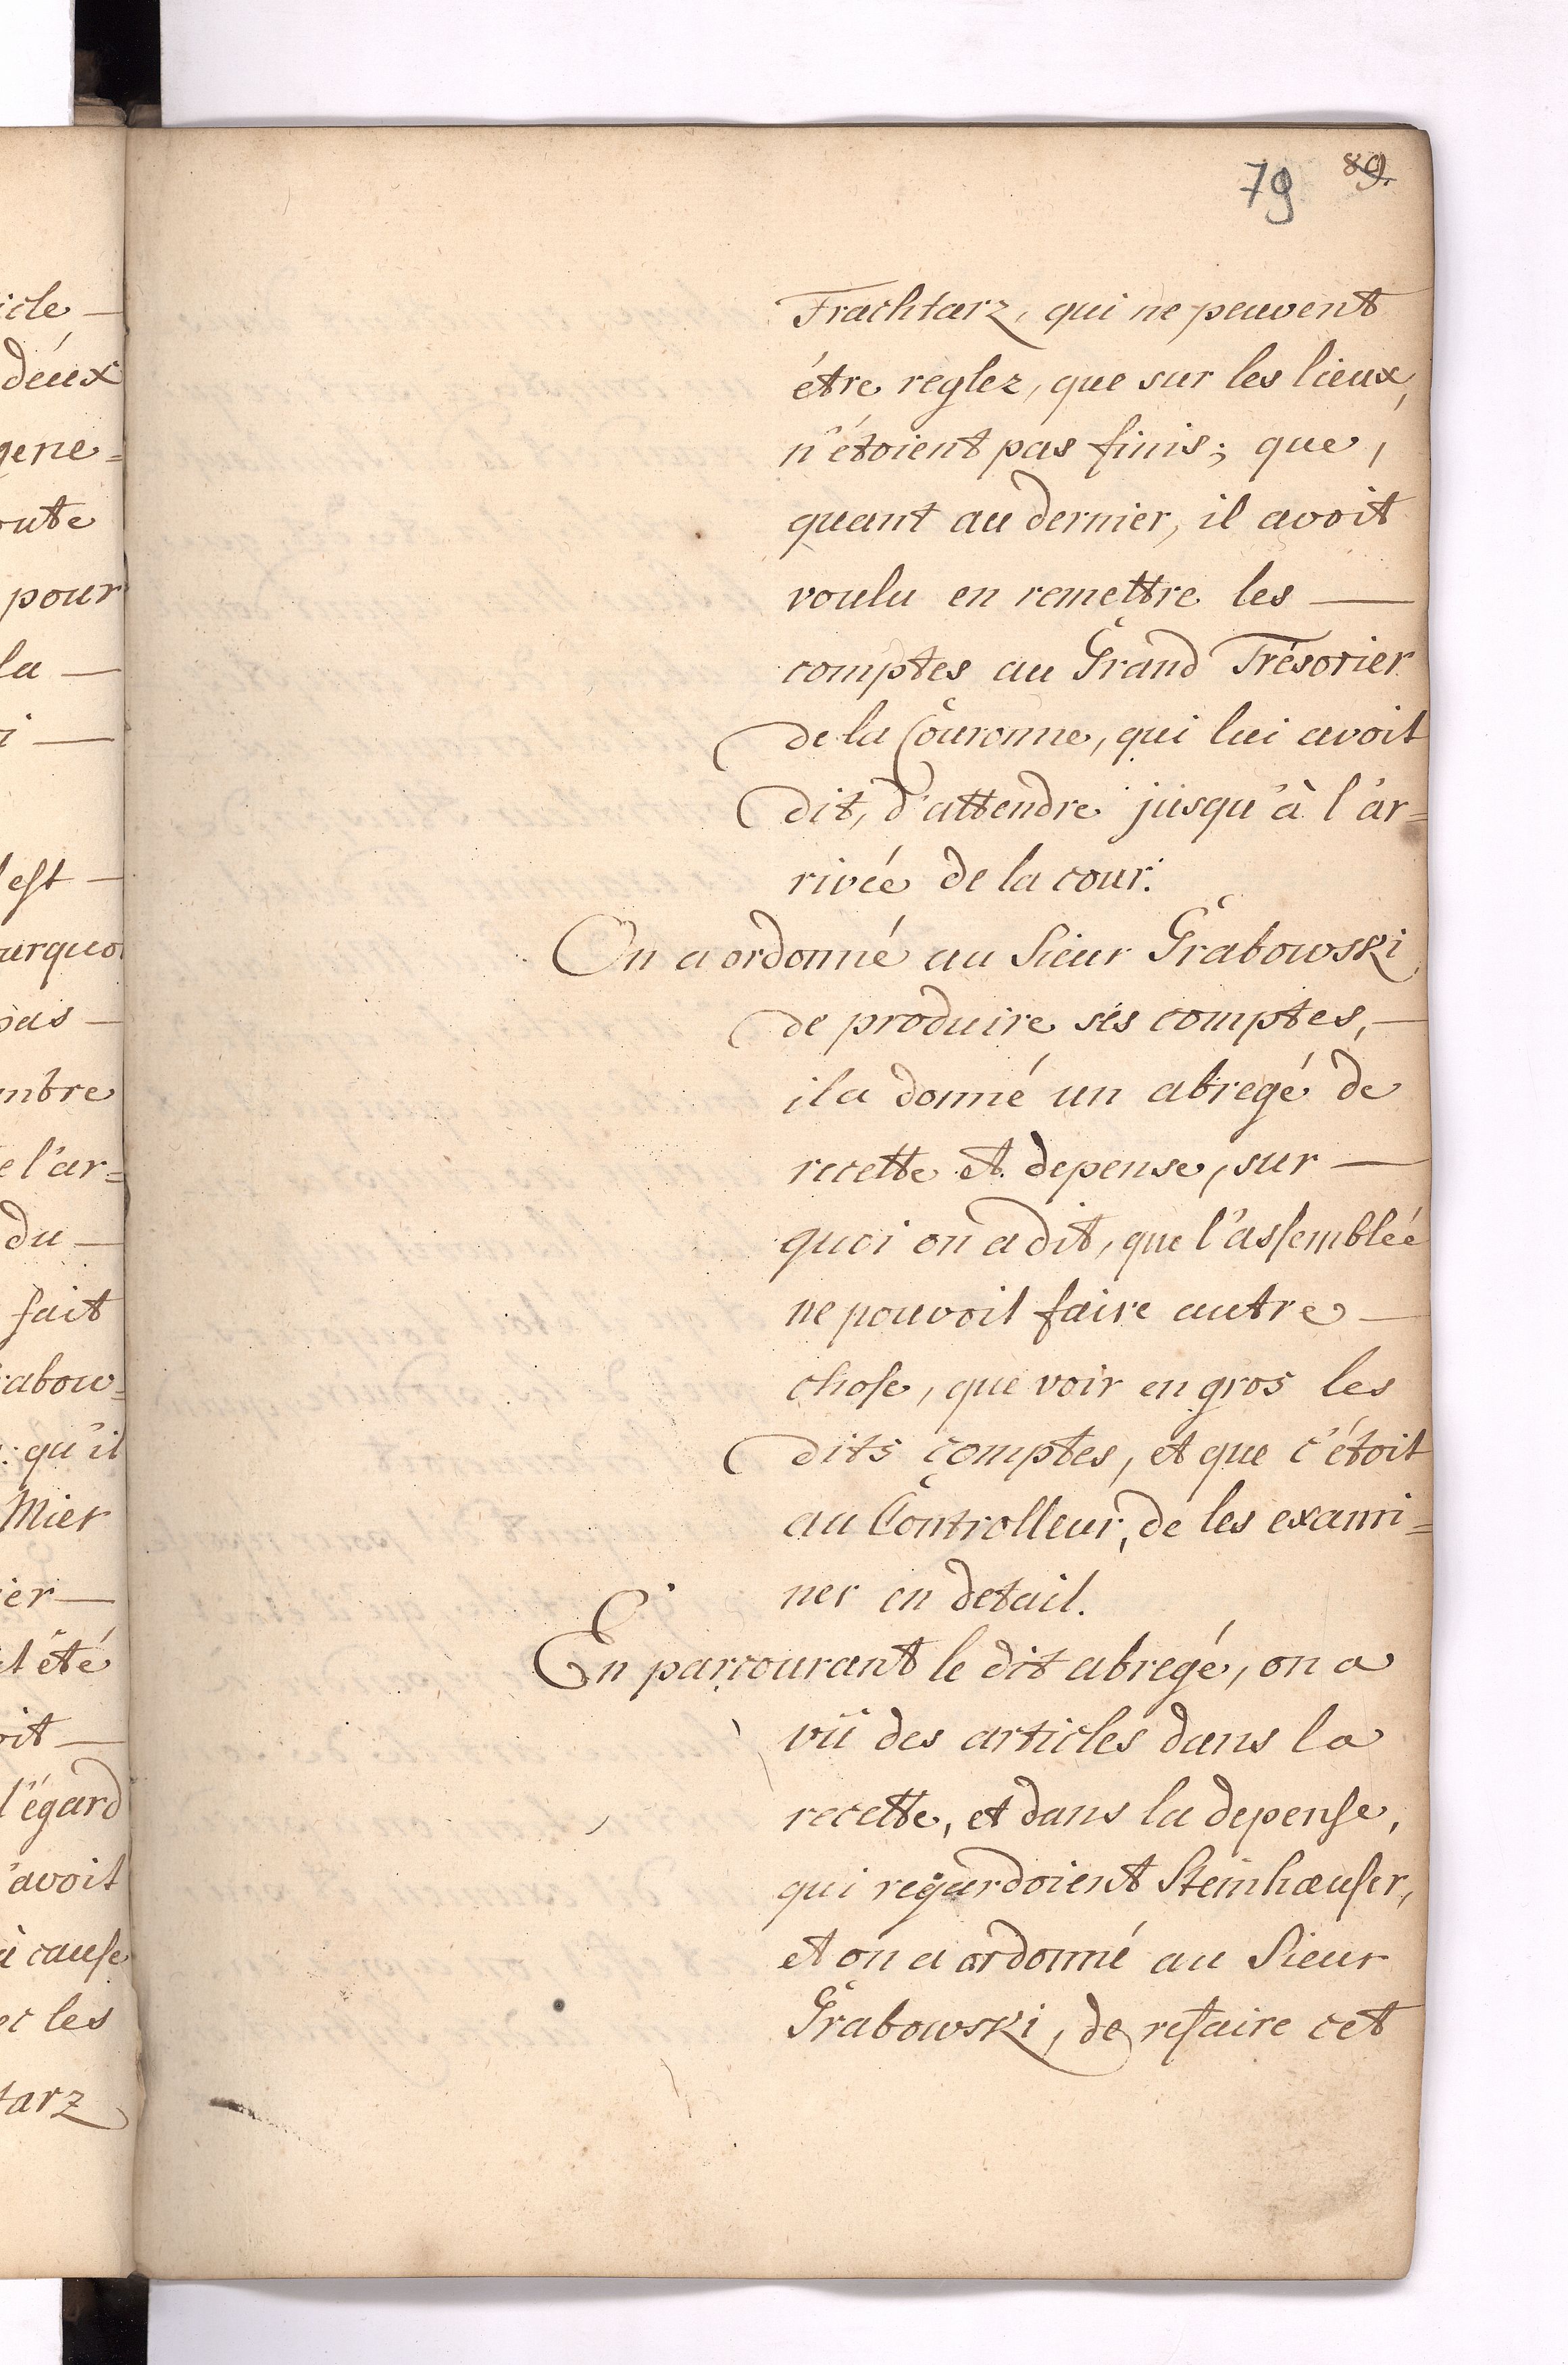 79 89.
icle —
deux
gene=
oute
pour
la —
i —
est —
urquoi
pas —
mbre
e l'ar=
du —
fait
rabow=
: qu'il
Mier
ier —
it été
oit —
l'égard
'avoit
à cause
ec les
tarz
Frachtarz, qui ne peuvent
étre reglez, que sur les lieux,
n'étoient pas finis; que,
quant au dernier, il avoit
voulu en remettre les —
comptes au Grand Trésorier
de la Couronne, qui lui avoit
dit, d'attendre jusqu'à l'ar=
rivée de la cour.
On a ordonné au Sieur Grabowski
de produire ses comptes, —
il a donné un abregé de
recette et depense, sur —
quoi on a dit, que l'assemblée
ne pouvoit faire autre —
chose, que voir en gros les
dits comptes, et que c'étoit
au Controlleur, de les exami=
ner en detail.
En parcourant le dit abregé, on a
vû des articles dans la
recette, et dans la depense,
qui regardoient Steinhæuser,
et on a ordonné au Sieur
Grabowski, de refaire cet